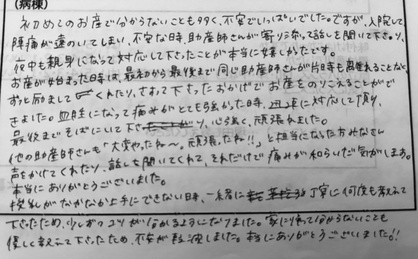 (病棟)
初めてのお産で分からないことも多く、不安でいっぱいでした。ですが、入院して
陣痛が遠のいてしまい、不安な時、助産師さんが寄り添って話しを聞いて下さり、
夜中も親身になって対応して下さったことが本当に嬉しかったです。
お産が始まった時は、最初から最後まで同じ助産師さんが片時も離れることなく
ずっと励まして くれたり、さすって下さったおかげでお産をのりこえることがで
きました。血圧になって痛みがとても強かった時、迅速に対応して頂き、
最後までそばにいて下さり、心強く、頑張れました。
他の助産師さんも「大変やったね〜、頑張ったね!!」と担当になった方みなさん
声をかけてくれたり、話しを聞いてくれて、それだけで痛みが和らいだ気がします。
本当にありがとうございました。
授乳がなかなか上手にできない日、一緒に 丁寧に何度も教えて
下さったため、少しずつ上手くなれるようになりました。家に帰って分からないことも
優しく教えて下さったため、不安が解決しました。本当にありがとうございました!!